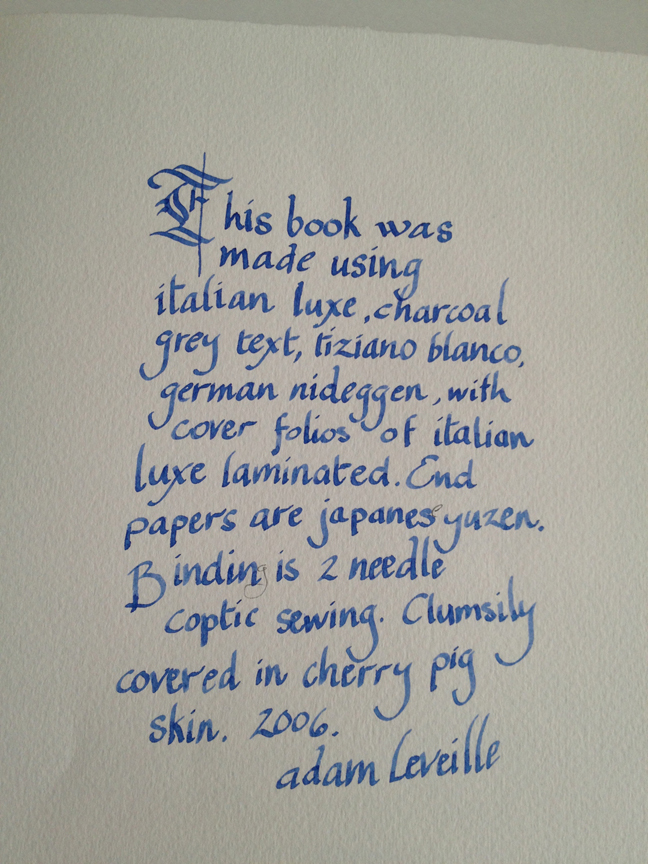 This book was
made using
italian luxe, charcoal
grey text, tiziano blanco,
german nideggen, with
cover folios of italian
luxe laminated. End
papers are japanese yuzen.
Binding is 2 needle
coptic sewing. Clumsily
covered in cherry pig
skin. 2006.
adam Leveille